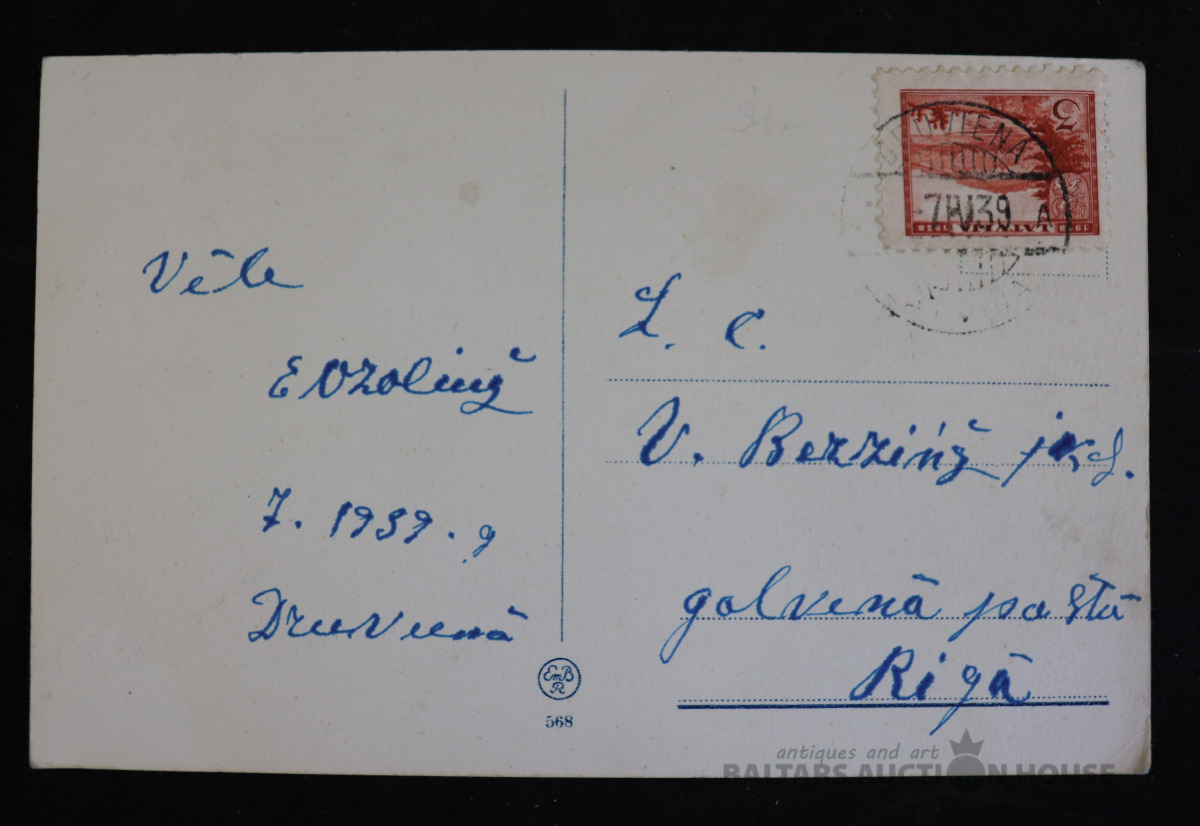 Vēle
E Ozoliņš
7. 1939. g
Druvienā
EmB
R
568
3
-7 IV 39 A
L. c.
V. Berziņš jkd.
galvenā pastā
Rigā
antiques and art
BALTARS AUCTION HOUSE